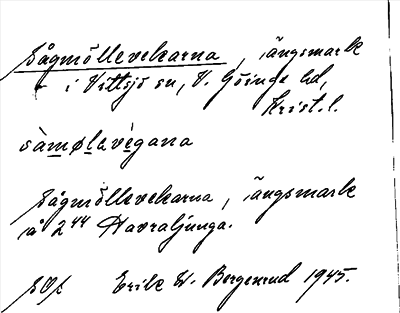 Sågmöllevekarna, ängsmark
i Vittsjö sn, V. Göinge hd,
Krist. l.
sàmølavégana
Sågmöllevekarna, ängsmark
å 2⁴⁴ Havraljunga.
Erik W. Bergenrud 1945.